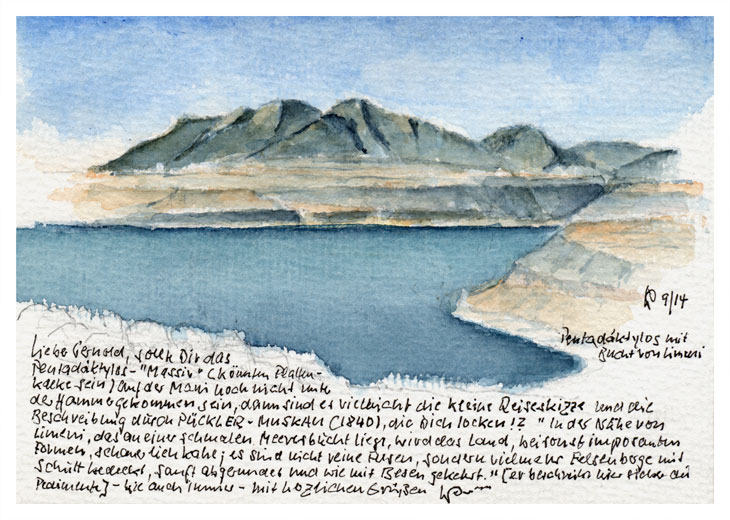 9/14
Pentadáktylos mit
Bucht von Limeni
Lieber Gernold, sollte Dir das
Pentadáktylos-"Massiv" (könnten Platten-
kalke sein) auf der Mani noch nicht unter
der Hammer gekommen sein, dann sind es vielleicht die kleine Reiseskizze und die
Beschreibung durch PÜCKLER-MUSKAU (1840), die Dich locken!? "In der Nähe von
Limeni, das an einer schmalen Meeresbucht liegt, wird das Land, bei sonst imposanten
Formen, schauerlich kahl; es sind nicht reine Felsen, sondern vielmehr Felsenberge mit
Schutt bedeckt, sanft abgerundet und wie mit Besen gekehrt." [er beschreibt hier sicher die
Pedimente] - wie auch immer - mit herzlichen Grüßen